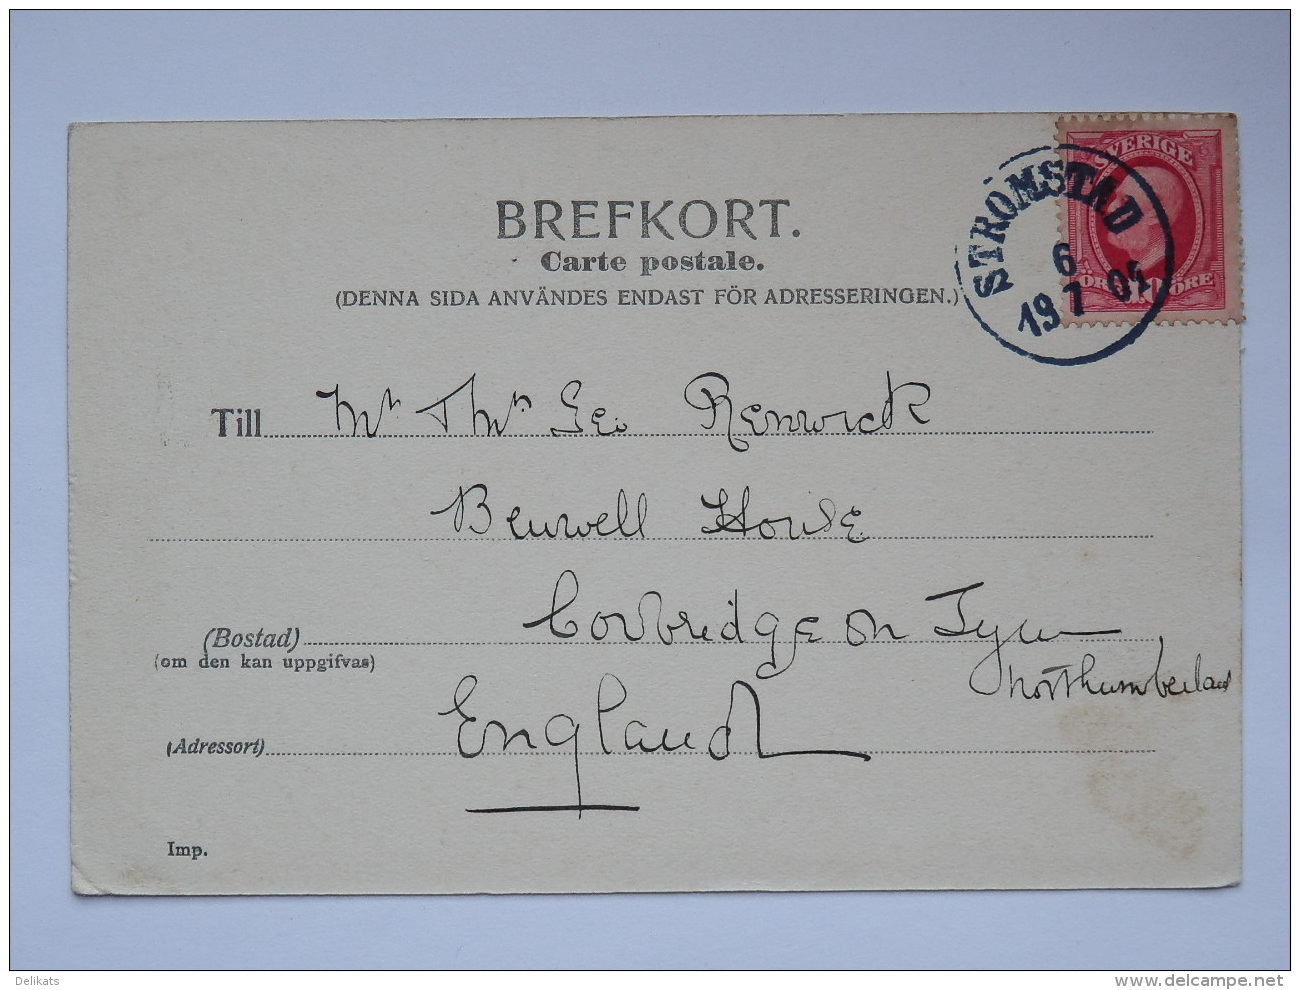 BREFKORT.
Carte postale.
(DENNA SIDA ANVÄNDES ENDAST FÖR ADRESSERINGEN.)
SVERIGE
10
ÖRE
STRÖMSTAD
6
19 7 04
Till Mr Thos Geo Renwick
Benwell House
(Bostad) Corbridge on Tyne,
(om den kan uppgifvas)
Northumberland
(Adressort) England
Imp.
Delikats
www.delcampe.net